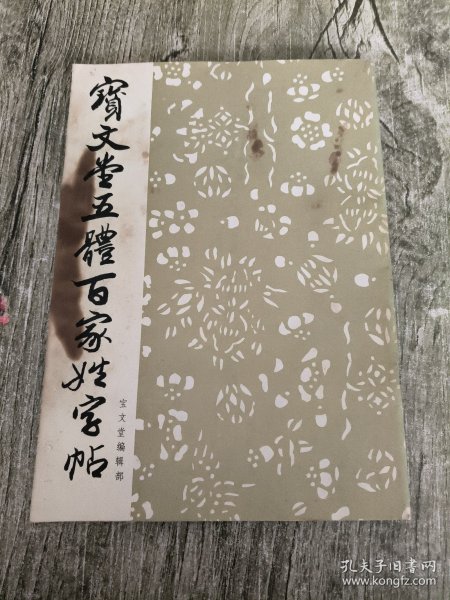 寶文堂五體百家姓字帖
宝文堂编辑部
孔夫子旧书网
www.kongfz.com